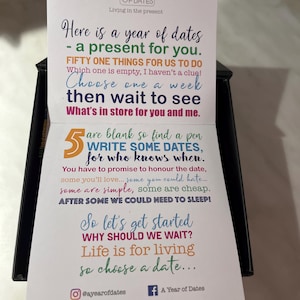 Living in the present
Here is a year of dates
- a present for you.
FIFTY ONE THINGS FOR US TO DO
Which one is empty, I haven't a clue!
Choose one a week
then wait to see
What's in store for you and me.
5 are blank so find a pen
WRITE SOME DATES,
for who knows when.
You have to promise to honour the date,
some you'll love... some you could hate...
some are simple, some are cheap.
AFTER SOME WE COULD NEED TO SLEEP!
So let's get started
WHY SHOULD WE WAIT?
Life is for living
so choose a date...
@ayearofdates
A Year of Dates